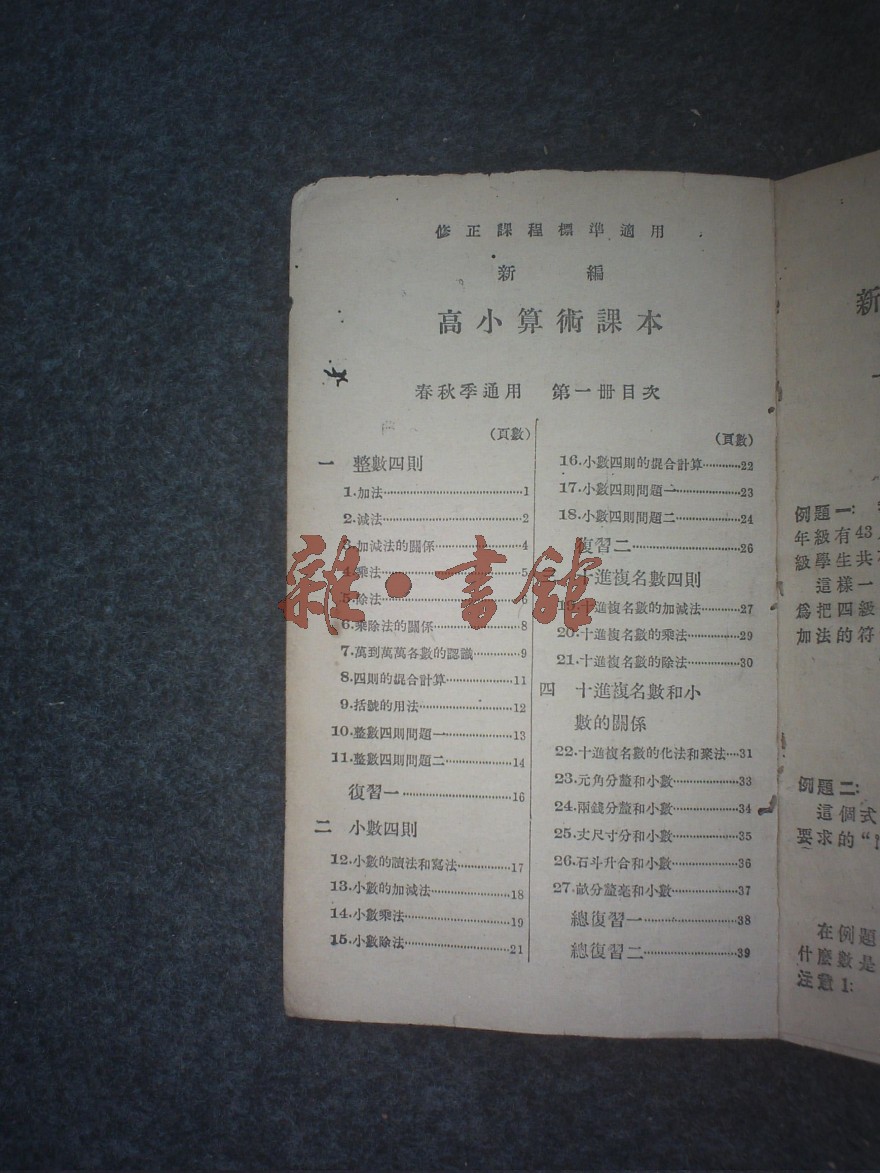 修正課程標準適用
新編
高小算術課本
春秋季通用 第一冊目次
(頁數)
一 整數四則
1.加法……1
2.減法……2
3.加減法的關係……4
4.乘法……5
5.除法……6
6.乘除法的關係……8
7.萬到萬萬各數的認識……9
8.四則的混合計算……11
9.括號的用法……12
10.整數四則問題一……13
11.整數四則問題二……14
復習一……16
二 小數四則
12.小數的讀法和寫法……17
13.小數的加減法……18
14.小數乘法……19
15.小數除法……21
(頁數)
16.小數四則的混合計算……22
17.小數四則問題一……23
18.小數四則問題二……24
復習二……26
三 十進複名數四則
19.十進複名數的加減法……27
20.十進複名數的乘法……29
21.十進複名數的除法……30
四 十進複名數和小
數的關係
22.十進複名數的化法和聚法…31
23.元角分釐和小數……33
24.兩錢分釐和小數……34
25.丈尺寸分和小數……35
26.石斗升合和小數……36
27.畝分釐毫和小數……37
總復習一……38
總復習二……39
雜·書館
新
例題一:
年級有43
級學生共
這樣一
爲把四級
加法的符
例題二:
這個式
要求的"
在例題
什麼數是
注意1: